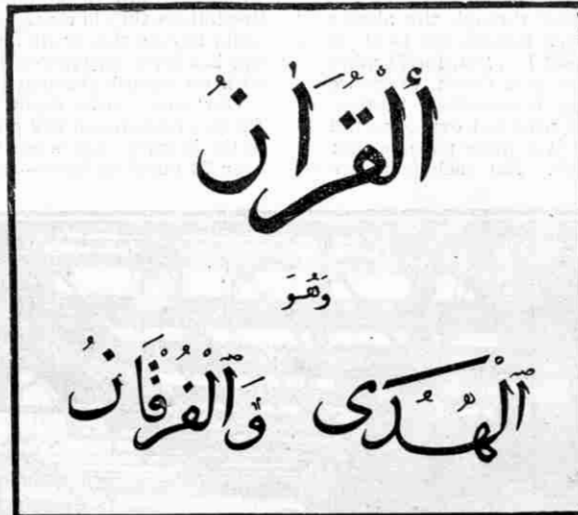 أَلْقُرْاٰنُ
وَهُوَ
اَلْهُدَى وَالْفُرْقَانُ